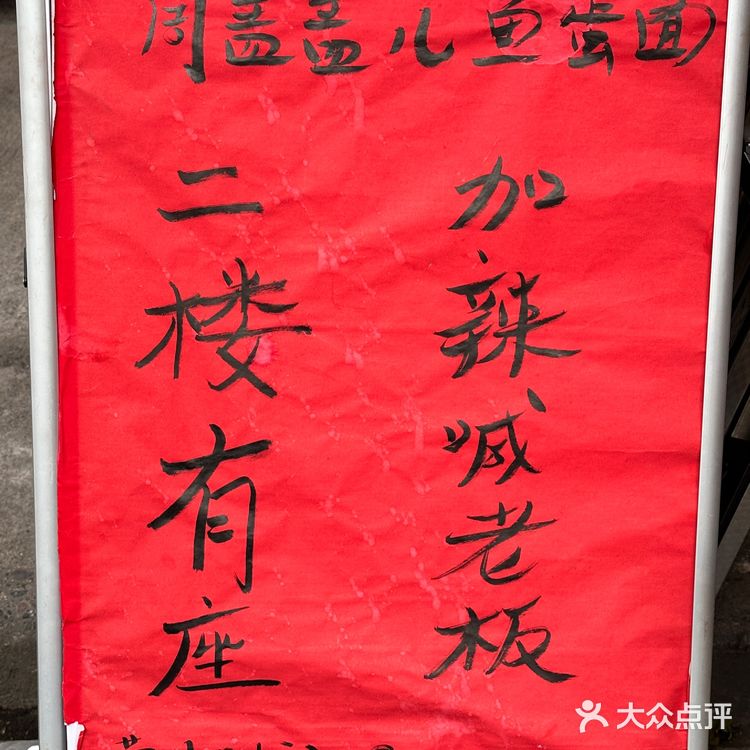 周盖盖儿鱼蛋面
加辣喊老板
二楼有座
大众点评